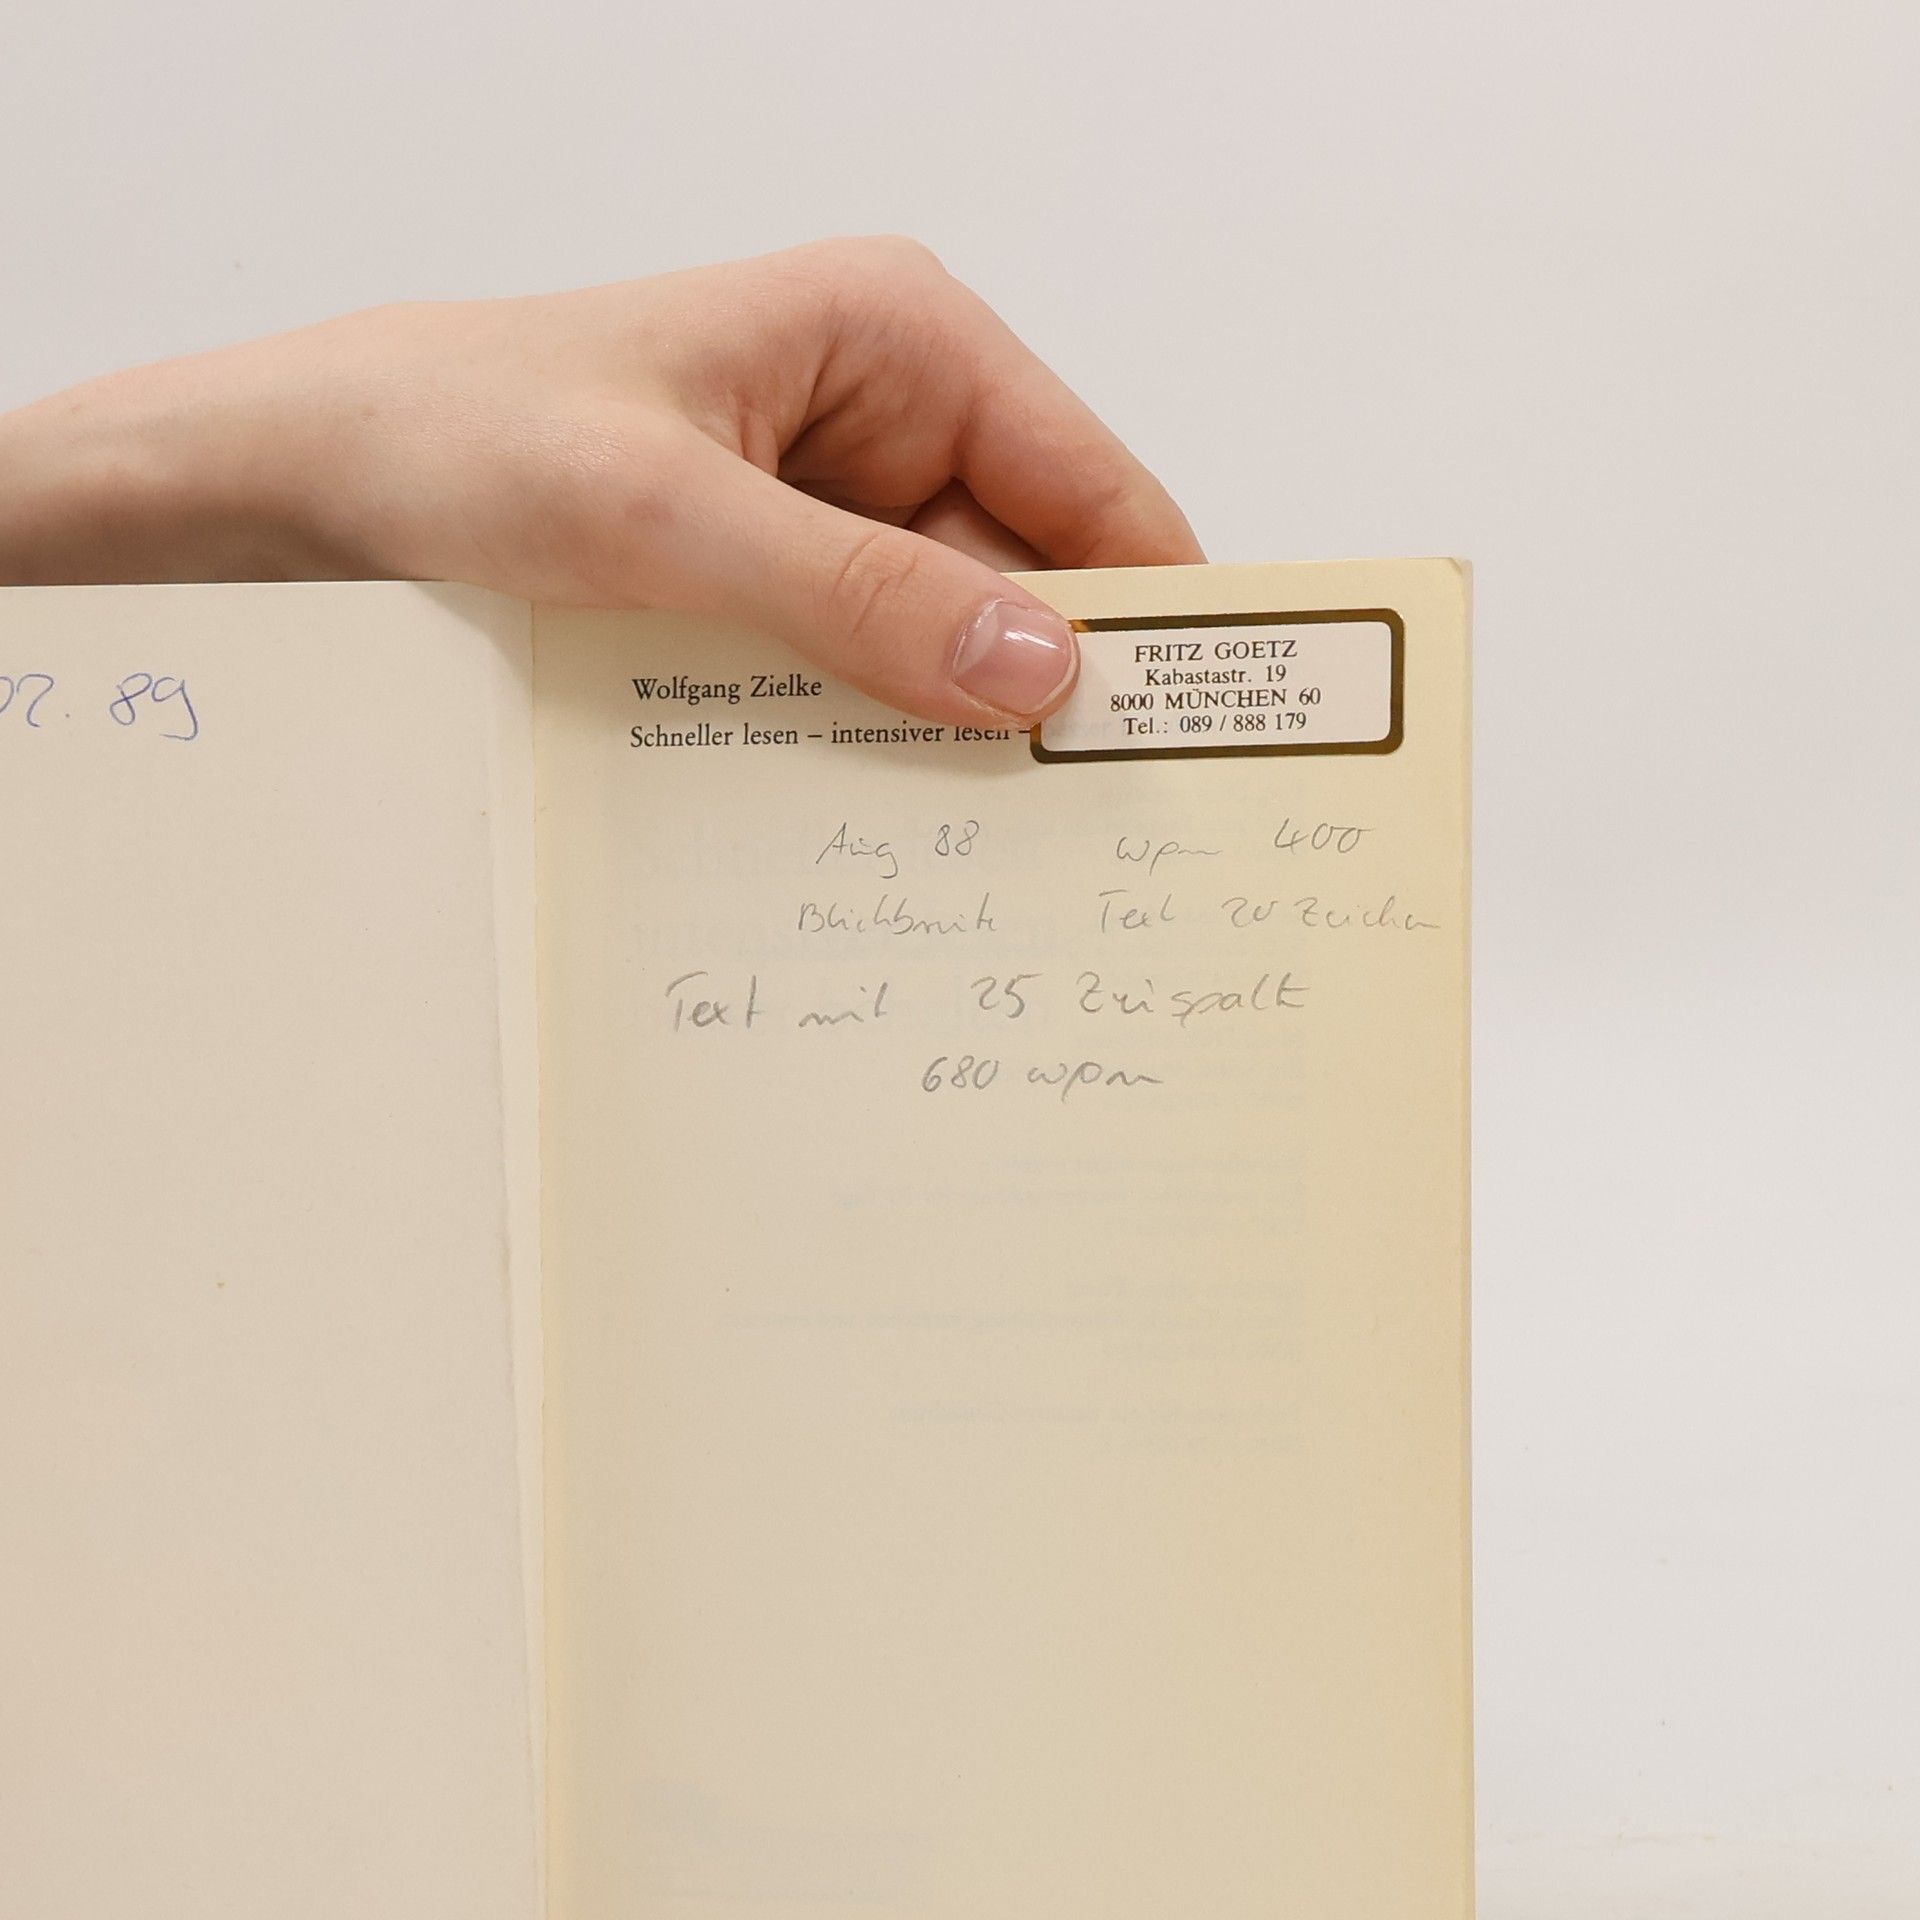 02. 89
Wolfgang Zielke
Schneller lesen – intensiver lesen –
FRITZ GOETZ
Kabastastr. 19
8000 MÜNCHEN 60
Tel.: 089 / 888 179
Aug 88 wpm 400
Blickbreite Text 20 Zeichen
Text mit 25 Zeispalte
680 wpm